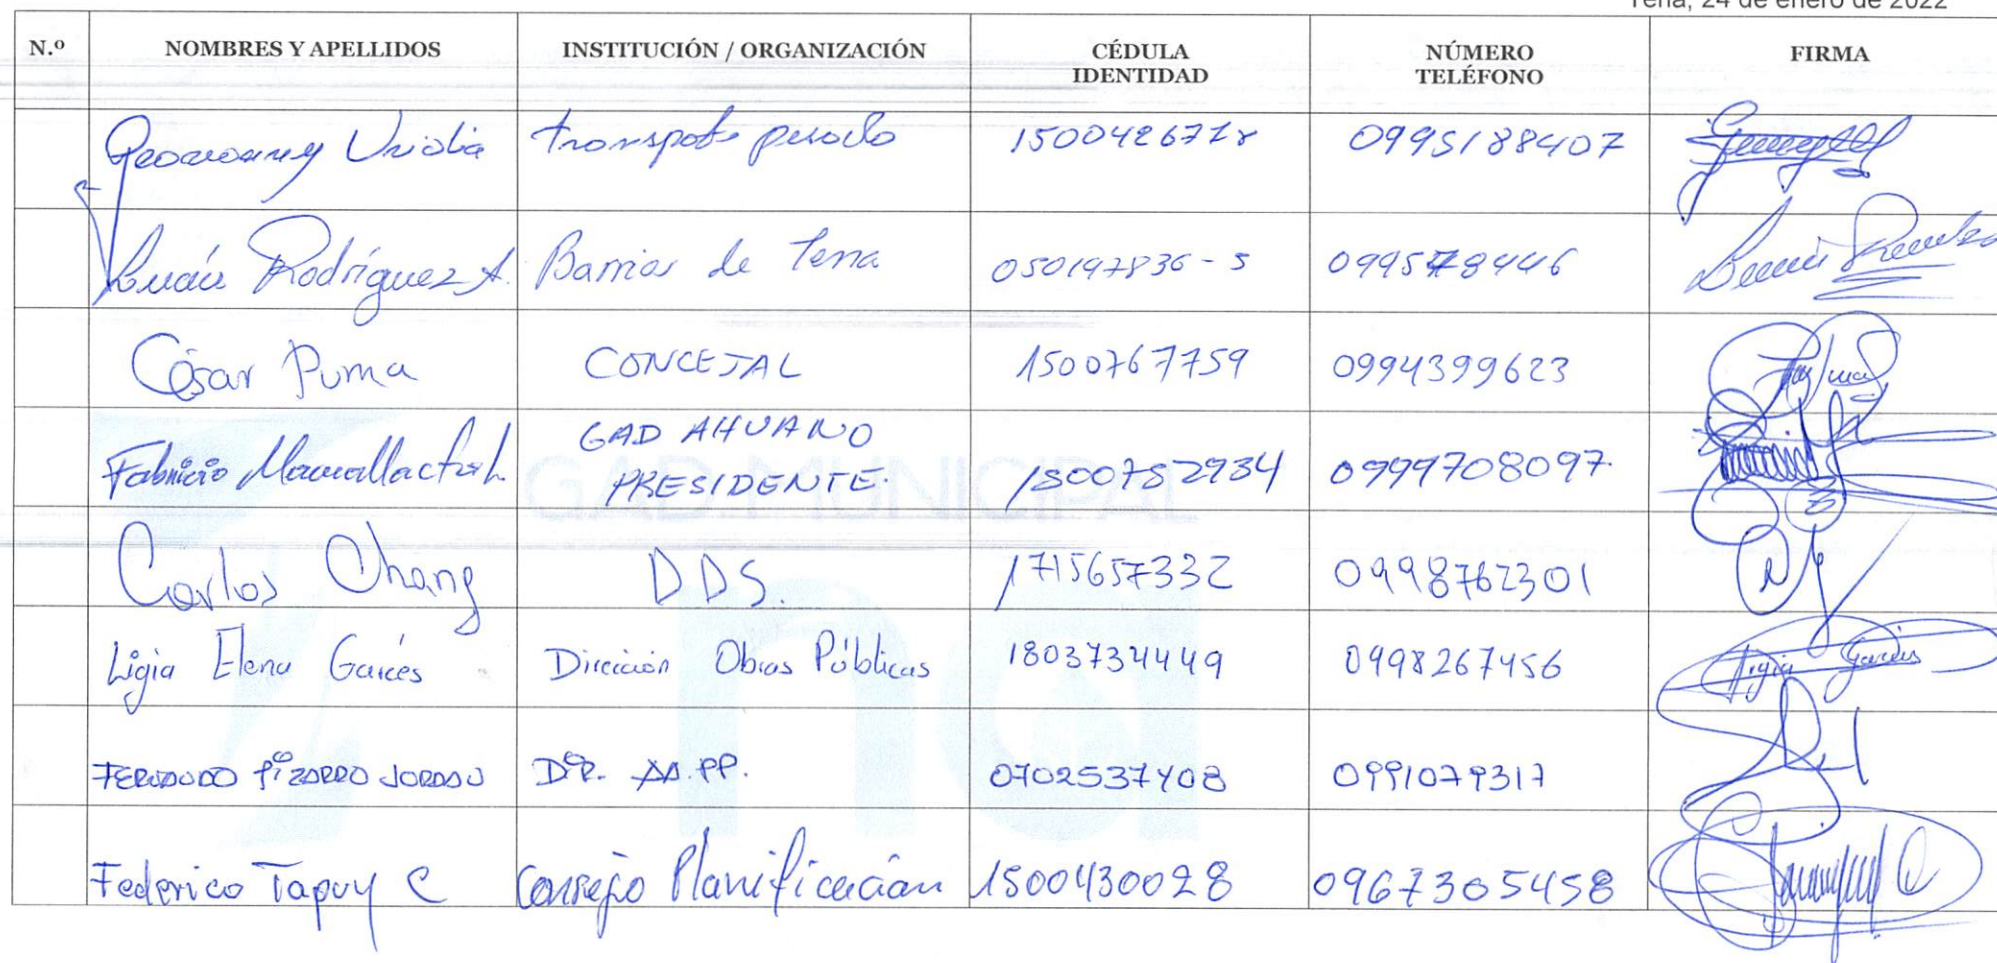 Tena, 24 de enero de 2022
N.º NOMBRES Y APELLIDOS INSTITUCIÓN / ORGANIZACIÓN CÉDULA IDENTIDAD NÚMERO TELÉFONO FIRMA
Geovanny Uvidia transpote pesado 1500426718 0995188407
Rodríguez A. Barrios de Tena 050197836-5 0995 78446
César Puma CONCEJAL 1500767759 0994399623
GAD AHUANO
Fabricio Mamallacta PRESIDENTE. 1500752934 0999708097
Carlos Chang D D S. 1715657332 0998762301
Ligia Elena Garcés Dirección Obras Públicas 1803734449 0998267456 Ligia Garcés
FERNANDO PIZARRO JORDAN DIR. AA.PP. 0702537408 0991079317
Federico Tapuy C Consejo Planificación 1500430028 0967305458
GAD MUNICIPAL
na